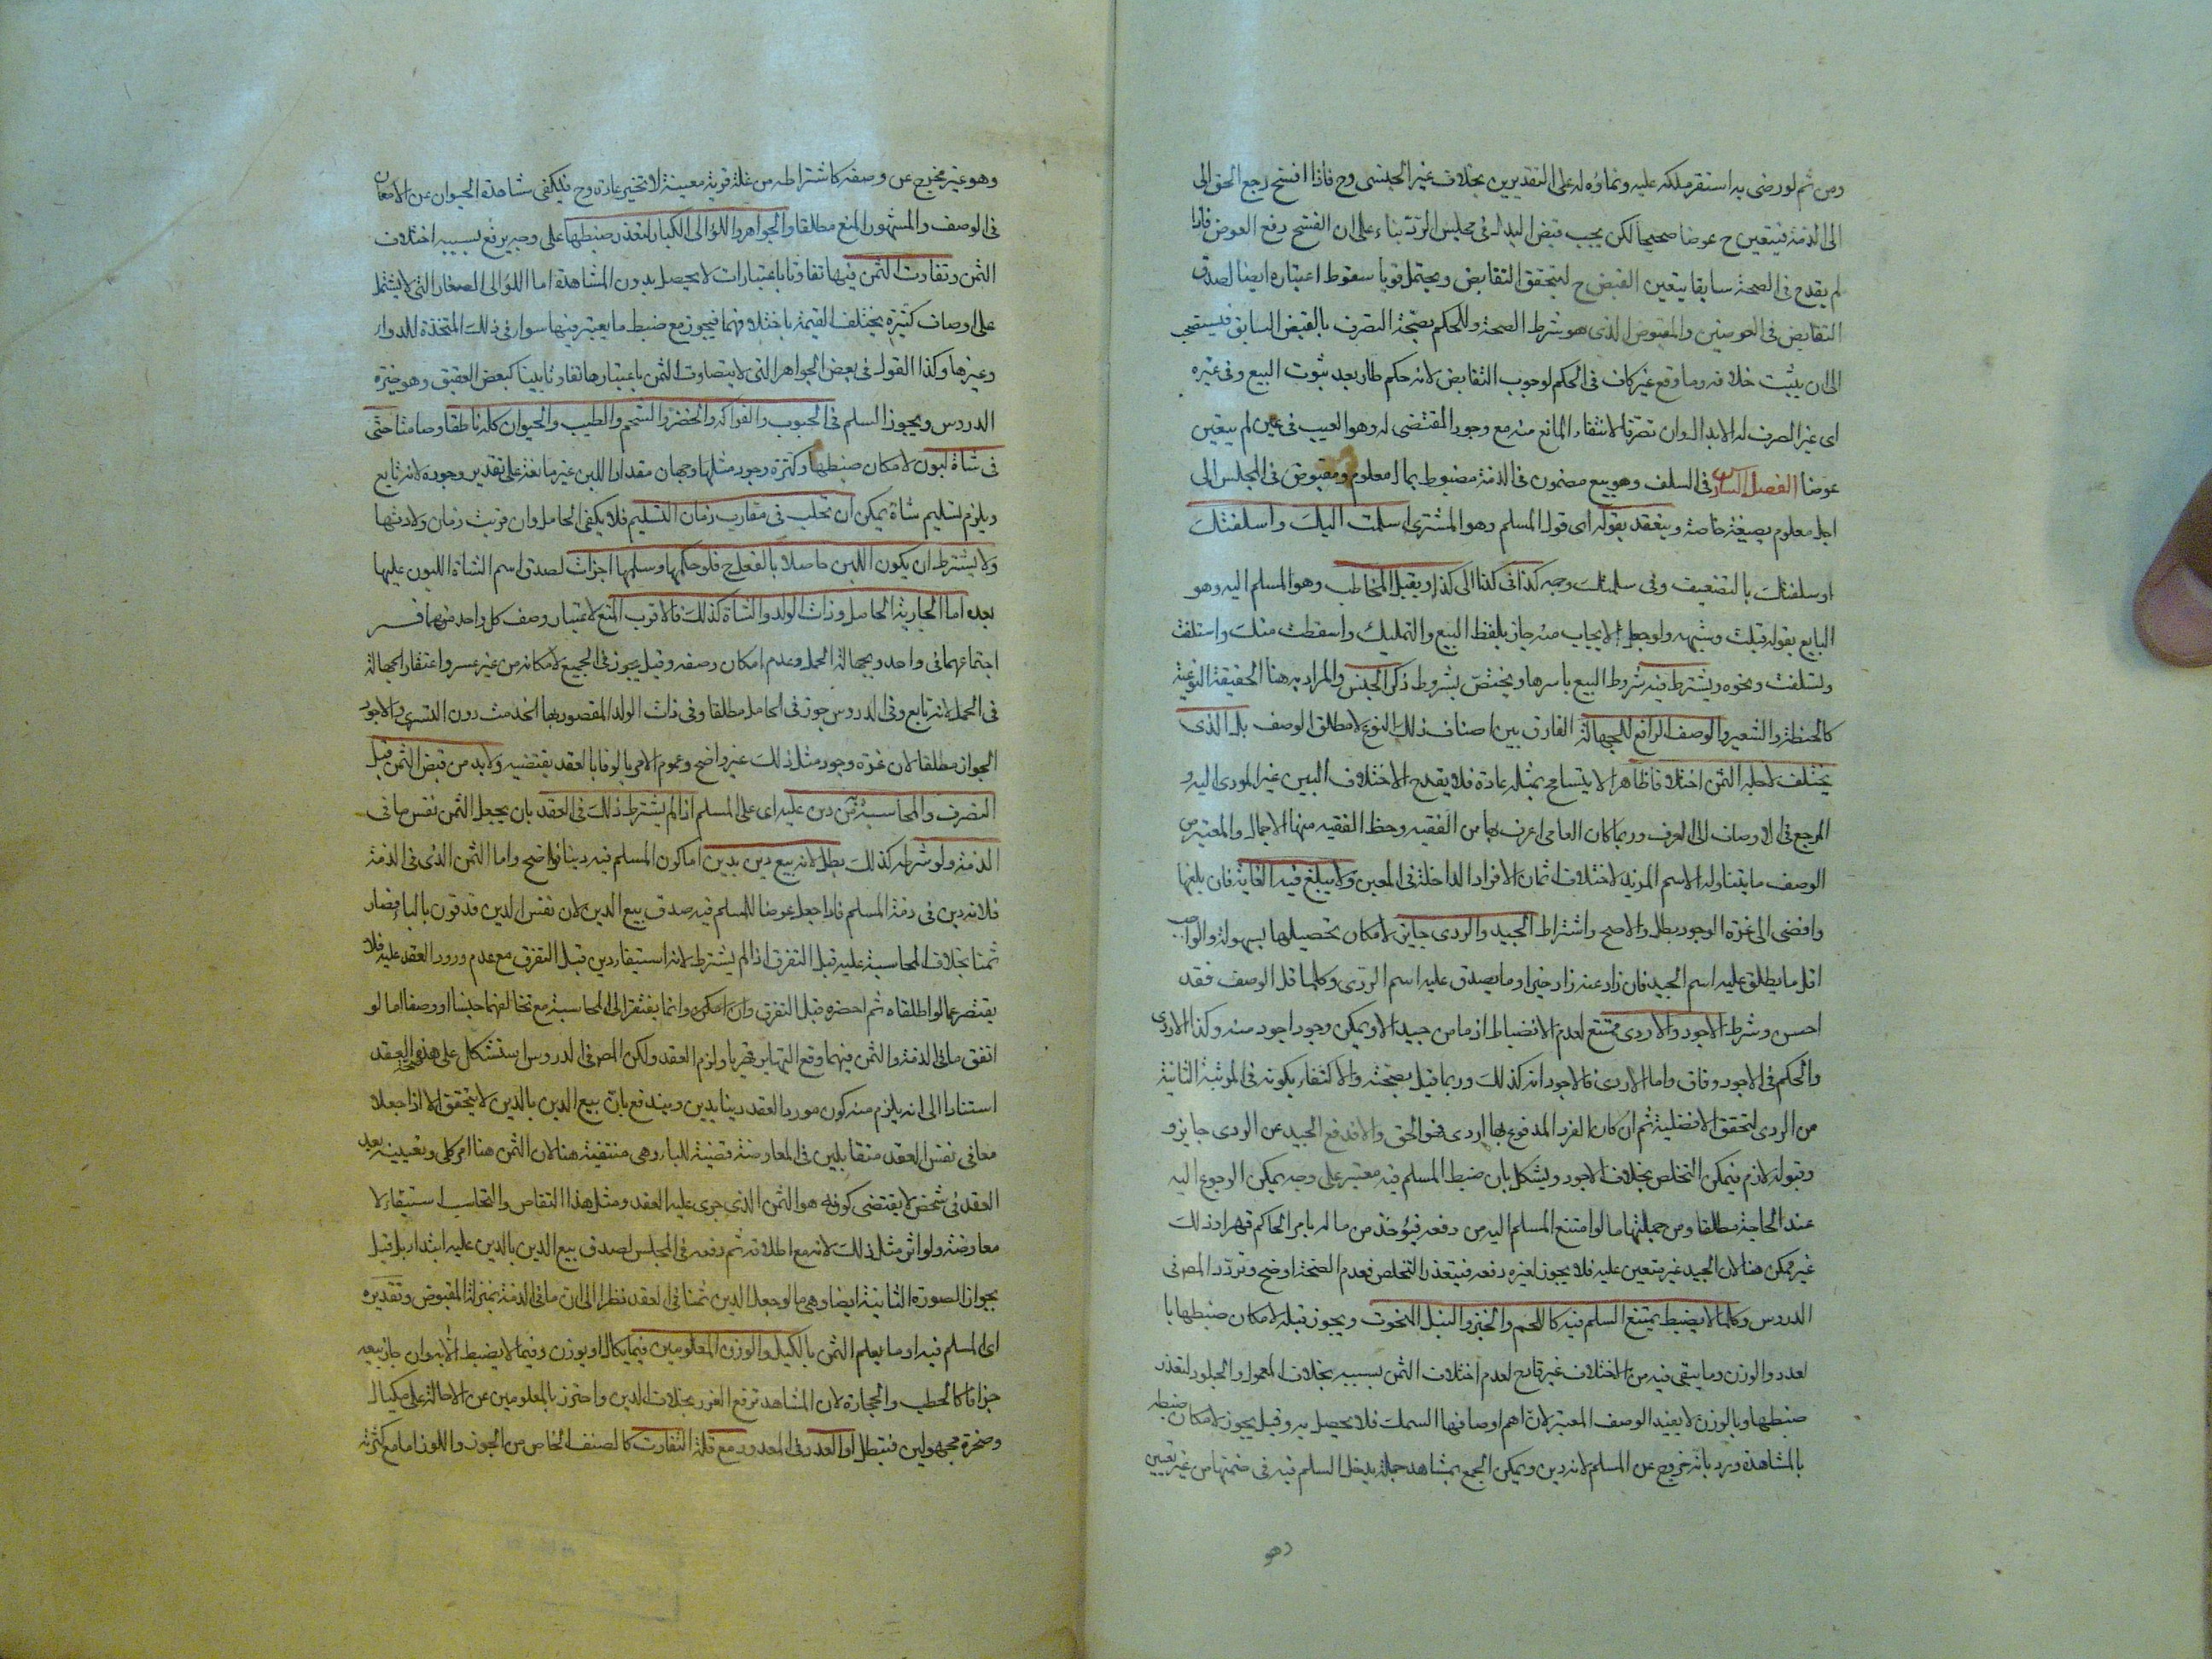 ومن ثم لو رضي به استقر ملكه عليه ونماؤه له على التقديرين بخلاف غير الجنسي وح فاذا افسخ رجع الحق الى
الى الذمة فيتعين ح عوضا صحيحا لكن يجب قبض البدل في مجلس الرد بناء على ان الفسخ رفع العوض فاذا
لم يقدح في الصحة سابقا يتعين القبض ح ليتحقق التقابض ويحتمل قويا سقوط اعتباره ايضا لصدق
التقابض في العوضين والمقبوض الذي هو شرط الصحة وللحكم بصحة التصرف بالقبض السابق فيستصحب
الى ان يثبت خلافه وما وقع غير كاف في الحكم لوجوب التقابض لانه حكم طار بعد ثبوت البيع وفي غيره
اى غير الصرف له الابدال وان تفرقا لانتفاء المانع منه مع وجود المقتضى له وهو العيب في عين لم يتعين
عوضا الفصل السادس في السلف وهو بيع مضمون في الذمة مضبوط بمال معلوم ومقبوض في المجلس الى
اجل معلوم بصيغة خاصة وينعقد بقوله اى قول المسلم وهو المشترى اسلمت اليك واسلفتك
او سلفتك بالتضعيف وفي سلمتك وجه كذا في كذا الى كذا ويقبل المخاطب وهو المسلم اليه وهو
البايع بقوله قبلت وشبهه ولو جعل الايجاب منه جاز بلفظ البيع والتمليك واسقطت منك واستلفت
وتسلفت ونحوه ويشترط فيه شروط البيع باسرها ويختص بشروط ذكر الجنس والمراد به هنا الحقيقة النوعية
كالحنطة والشعير والوصف الرافع للجهالة الفارق بين اصناف ذلك النوع لا مطلق الوصف بل الذى
يختلف لاجله الثمن اختلافا ظاهرا لا يتسامح بمثله عادة فلا يقدح الاختلاف البسير غير المودى اليه و
المرجع في الاوصاف الى العرف وربما كان العامى اعرف بها من الفقيه وحظ الفقيه منها الاجمال والمعتبر من
الوصف ما يتناوله الاسم المزيل لاختلاف اثمان الافراد الداخلة في المعين ولا يبلغ فيه الغاية فان بلغها
وافضى الى عزة الوجود بطل والا صح واشتراط الجيد والردى جايز لامكان تحصيلها بسهولة والواجب
اقل ما يطلق عليه اسم الجيد فان زاد عنه زاد خيرا وما يصدق عليه اسم الردى وكلما قل الوصف فقد
احسن وشرط الاجود والاردى ممتنع لعدم الانضباط اذ ما من جيد الا ويمكن وجود اجود منه وكذا الاردى
والحكم في الاجود وفاق واما الاردى فالاجود انه كذلك وربما قيل بصحته والاكتفاء بكونه في المرتبة الثانية
من الردى لتحقق الافضلية ثم ان كان الفرد المدفوع بها اردى فهو الحق والا فدفع الجيد عن الردى جايز و
وقبوله لازم فيمكن التخلص بخلاف الاجود ويشكل بان ضبط المسلم فيه معتبر على وجه يمكن الرجوع اليه
عند الحاجة مطلقا ومن جملتها ما لو امتنع المسلم اليه من دفعه فيؤخذ من ماله بامر الحاكم قهرا وذلك
غير ممكن هنا لان الجيد غير متعين عليه فلا يجوز لغيره دفعه فيتعذر التخلص فعدم الصحة اوضح وتردد المص في
الدروس وكلما لا يضبط يمتنع السلم فيه كاللحم والخبز والنبل المنحوت ويجوز قبله لامكان ضبطها با
لعدد والوزن وما يبقى فيه من الختلاف غير قادح لعدم اختلاف الثمن بسببه بخلاف المعمول والجلود لتعذر
ضبطها وبالوزن لا يفيد الوصف المعتبر لان اهم اوصافها السمك فلا يحصل به وقيل يجوز لامكان ضبطه
بالمشاهدة ورد بانه خروج عن المسلم لانه دين ويمكن الجمع بمشاهد جملة يدخل السلم فيه في ضمنها من غير تعيين
وهو
وهو غير مخرج عن وصفه كاشتراطه من غلة قرية معينة لا تخير عادة وح فيكفى مشاهدة الحيوان عن الامعان
في الوصف والمشهور المنع مطلقا والجواهر واللؤالى الكبار لتعذر ضبطها على وجه يرفع بسببه اختلاف
الثمن وتفاوت الثمن فيها تفاوتا باعتبارات لا يحصل بدون المشاهدة اما اللؤالى الصغار التى لا يشتمل
على اوصاف كثيرة يختلف القيمة باختلافها فيجوز مع ضبط ما يعتبر فيها سوار في ذلك المتخذة للدوار
وغيرها وكذا القول في بعض الجواهر التى لا يتفاوت الثمن باعتبارها تفاوتا بينا كبعض العقيق وهو خيرة
الدروس ويجوز السلم في الحبوب والفواكه والخضر والشحم والطيب والحيوان كله ناطقا وصامتا حتى
في شاة لبون لامكان ضبطها وكثرة وجود مثلها وجهان مقدار اللبن غير مانعة على تقدير وجوده لانه تابع
ويلزم تسليم شاة يمكن ان تحلب في مقارب زمان التسليم فلا يكفى الحامل وان قربت زمان ولادتها
ولا يشترط ان يكون اللبن حاصلا بالفعل ح فلو حكمها وسلمها اجزات لصدق اسم الشاة اللبون عليها
بعده اما الجارية الحامل وذات الولد والشاة كذلك فالاقرب المنع لاعتبار وصف كل واحد منهما فـ
اجتماعهما في واحد ويجهالة الحمل وعدم امكان وصفه وقيل يجوز في الجميع لامكانه من غير عسر واغتفار الجهالة
في الحمل لانه تابع وفي الدروس جوز في الحامل مطلقا وفي ذات الولد المقصود بها الخدمت دون التسرى والاجود
الجواز مطلقا لان عزة وجود مثل ذلك غير واضح وعموم الامر بالوفا بالعقد يقتضيه ولا بد من قبض الثمن قبل
التصرف والمحاسبة من دين عليه اى على المسلم اذا لم يشترط ذلك في العقد بان يجعل الثمن نفس ما في
الذمة ولو شرطه كذلك بطل لانه بيع دين بدين اما كون المسلم فيه دينا فواضح واما الثمن الذى في الذمة
فلانه دين في ذمة المسلم فاذا جعل عوضا للمسلم فيه صدق بيع الدين لان نفس الدين قد قون بالباء فصار
ثمنا بخلاف المحاسبة عليه قبل التفرق اذا لم يشترط لانه استيفاء دين قبل التفرق مع عدم ورود العقد عليه فلا
يقتصر عما لو اطلقاه ثم احضره قبل التفرق وان امكن وانما يفتقر الى المحاسبة مع تخالفهما جنسا او وصفا اما لو
اتفق ما في الذمة والثمن فيهما وقع التهاتر قهريا ولزم العقد ولكن المص في الدروس استشكل على هذه صحة العقد
استنادا الى انه يلزم منه كون مورد العقد دينا بدين ويندفع بان بيع الدين بالدين لا يتحقق الا اذا جعلا
معا في نفس العقد متقابلين في المعاوضة قضية للباء وهى منتفية هنا لان الثمن هنا امر كلى وتعيينه بعد
العقد في شخص لا يقتضى كونه هو الثمن الذى جرى عليه العقد ومثل هذا التقاص والتحاسب استيفاء لا
معاوضة ولو اثر مثل ذلك لاثر مع اطلاقه ثم دفعه في المجلس لصدق بيع الدين بالدين عليه ابتداء بل قيل
بجواز الصورة الثانية ايضا وهى ما لو جعل الدين ثمنا في العقد نظرا الى ان ما في الذمة بمنزلة المقبوض وتقديره
اى المسلم فيه او ما يعلم الثمن بالكيل والوزن المعلومين فيما يكال او يوزن وفيما لا يضبط الا به وان جاز بيعه
جزافا كالحطب والحجارة لان المشاهد ترفع الغرر بخلاف الدين واحترز بالمعلومين عن الاحالة على مكيال
وصخرة مجهولين فيبطل او العدد في المعدود مع قلة التفاوت كالصنف الخاص من الجوز واللوز اما مع كثرته